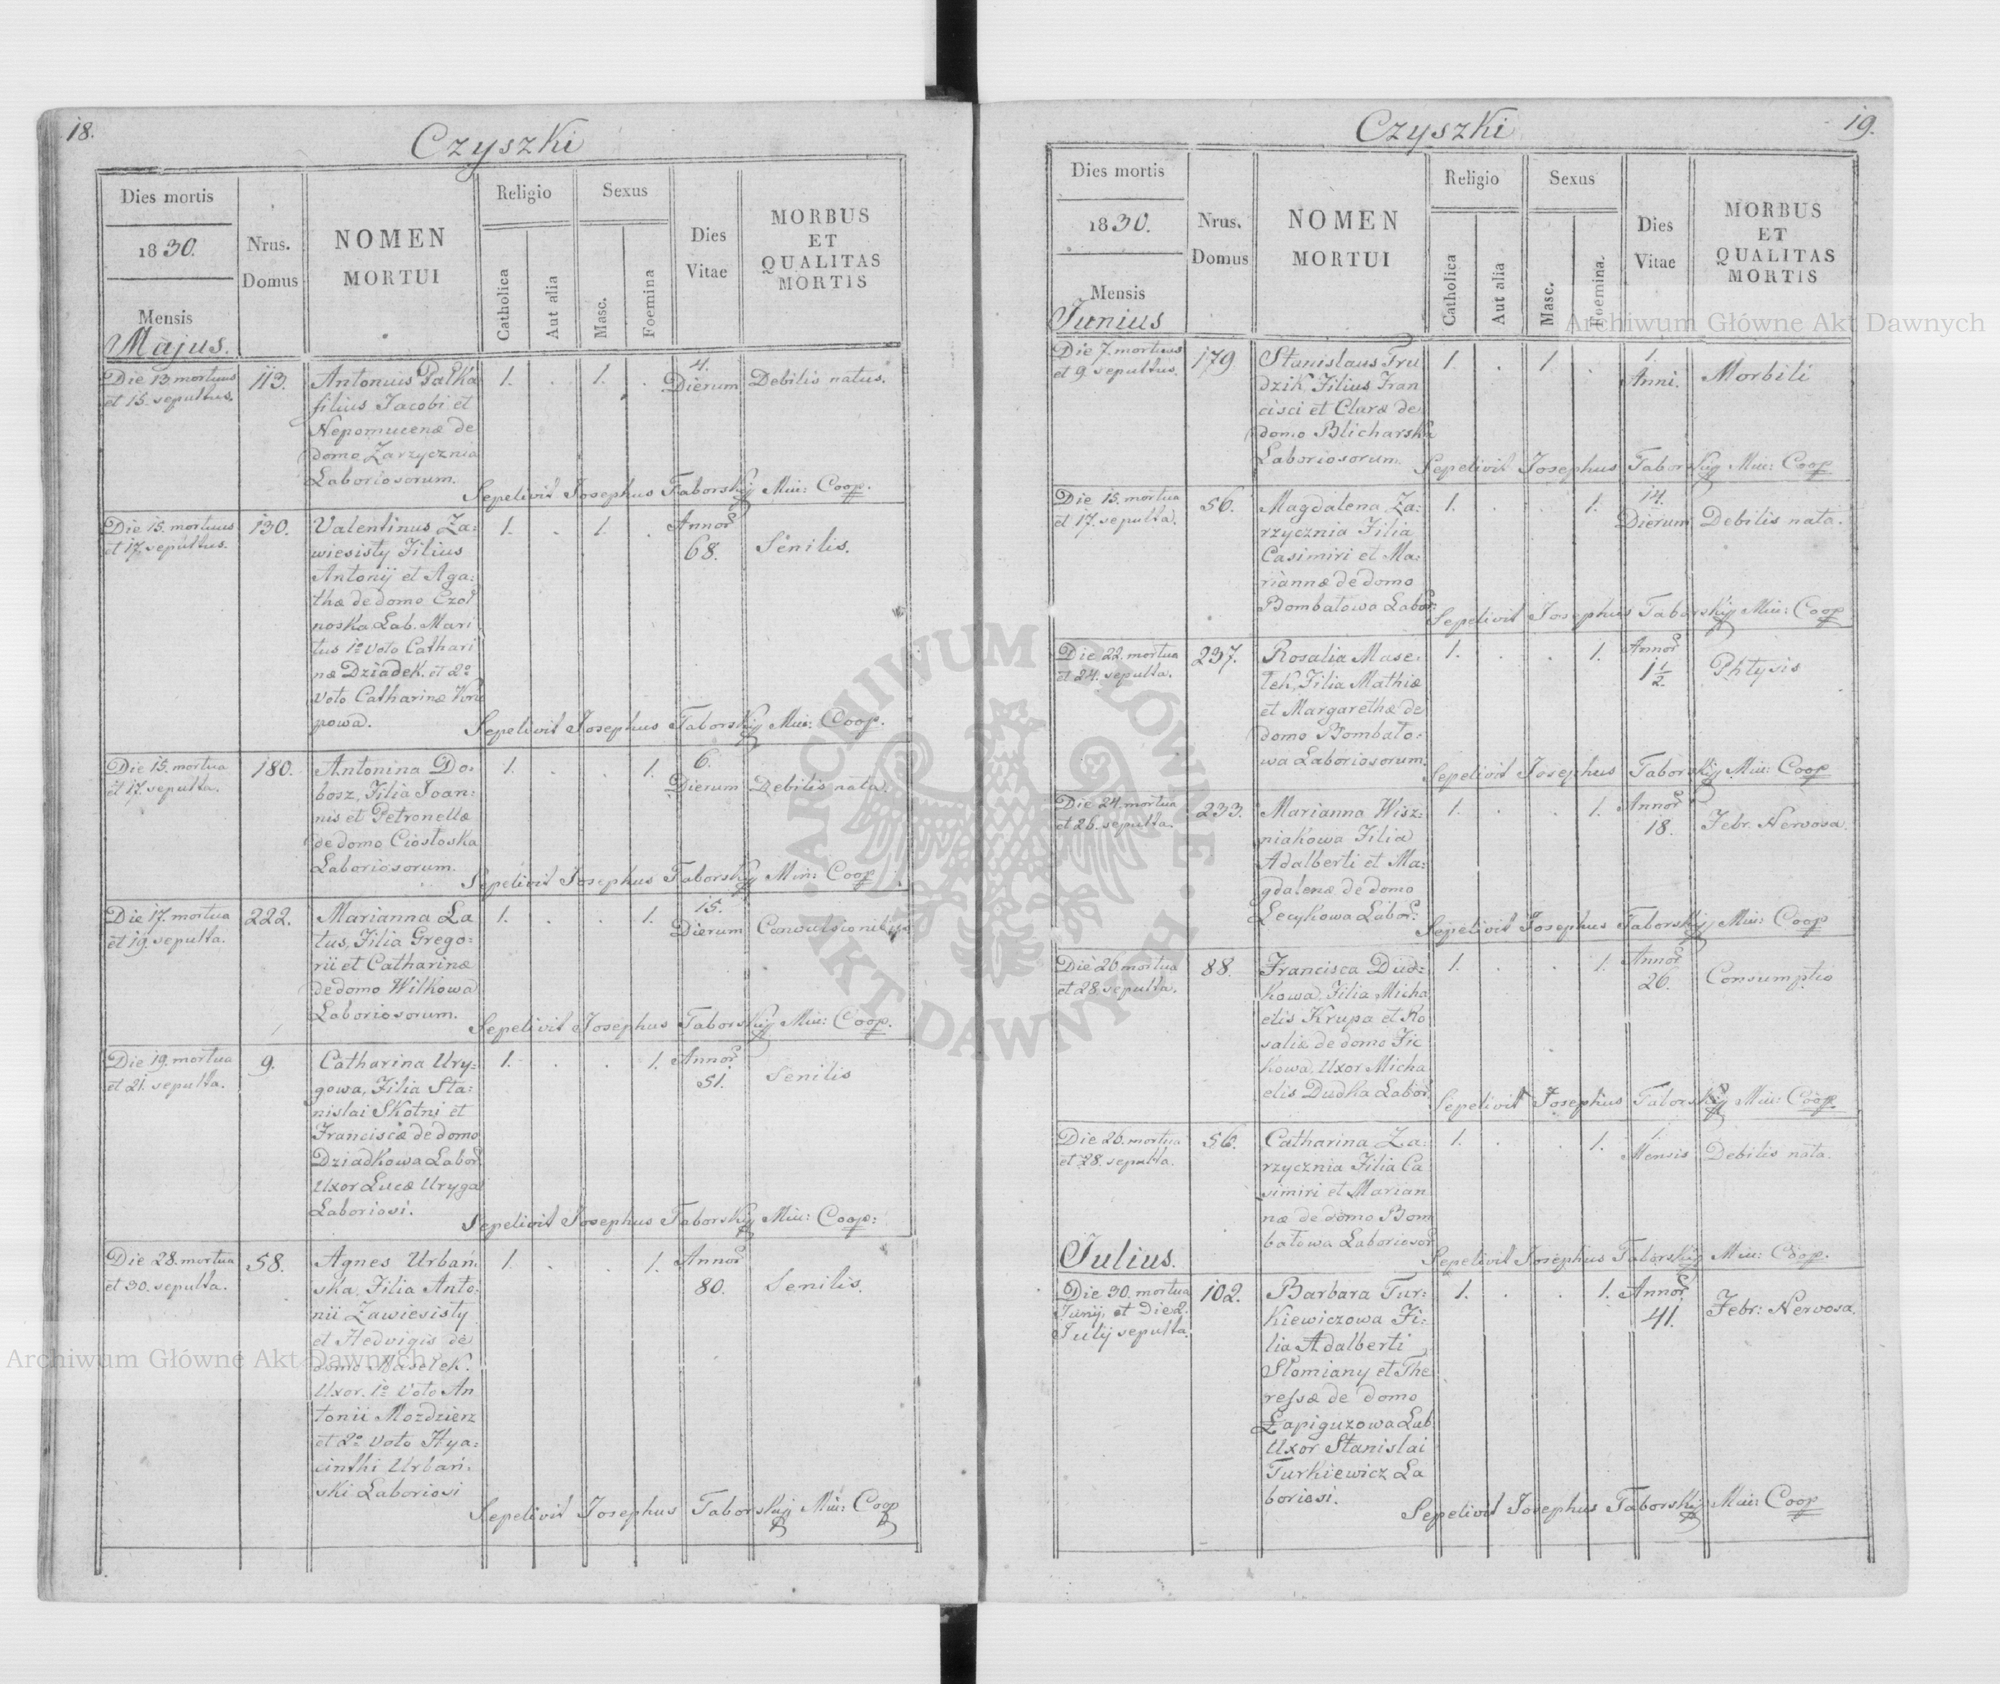 18.
Czyszki
Dies mortis
1830.
Mensis
Majus.
Nrus.
Domus
NOMEN
MORTUI
Religio
Catholica
Aut alia
Sexus
Masc.
Foemina
Dies
Vitae
MORBUS
ET
QUALITAS
MORTIS
Die 13. mortuus
et 15. sepultus.
113.
Antonius Pałka
filius Jacobi et
Nepomucenæ de
domo Zarzycznia
Laboriosorum.
1. . 1. .
4.
Dierum
Debilis natus.
Sepelivit Josephus Taborskij Min: Coop.
Die 15. mortuus
et 17. sepultus.
130.
Valentinus Za:
wiesisty Filius
Antonij et Aga:
thæ de domo Czoł
noska Lab. Mari
tus 1º Voto Cathari
næ Dziadek. et 2º
Voto Catharinæ
powa.
1. . 1. .
Annor
68.
Senilis.
Sepelivit Josephus Taborskij Min: Coop.
Die 15. mortua
et 17. sepulta.
180.
Antonina Do:
bosz, Filia Joan:
nis et Petronellæ
de domo Ciosłoska
Laboriosorum.
1. . . 1.
6.
Dierum
Debilis nata.
Sepelivit Josephus Taborskij Min: Coop
Die 17. mortua
et 19. sepulta.
222.
Marianna La
tus, Filia Grego:
rii et Catharinæ
de domo Wilkowa
Laboriosorum.
1. . . 1.
15.
Dierum
Sepelivit Josephus Taborskij Min: Coop.
Die 19. mortua
et 21. sepulta.
9.
Catharina Ury:
gowa, Filia Sta:
nislai Skotni et
Franciscæ de domo
Dziadkowa Labor
Uxor Lucæ Uryga
Laboriosi.
1. . . 1.
Annor
51.
Senilis
Sepelivit Josephus Taborskij Min: Coop:
Die 28. mortua
et 30. sepulta.
58.
Agnes Urbań
ska, Filia Anto:
nii Zawiesisty
et Hedvigis de
domo Maselek.
Uxor. 1º Voto An
tonii Mozdzierz
et 2º Voto Hya:
cinthi Urbań:
ski Laboriosi
1. . . 1.
Annor
80.
Senilis.
Sepelivit Josephus Taborskij Min: Coop
19.
Czyszki
Dies mortis
1830.
Mensis
Junius
Nrus.
Domus
NOMEN
MORTUI
Religio
Catholica
Aut alia
Sexus
Masc.
Foemina.
Dies
Vitae
MORBUS
ET
QUALITAS
MORTIS
Die 7. mortuus
et 9. sepultus.
179.
Stanislaus Tru
dzik, Filius Fran
cisci et Claræ de
domo Blicharska
Laboriosorum
1. . 1. .
1.
Anni.
Morbili
Sepelivit Josephus Taborskij Min: Coop
Die 15. mortua
et 17. sepulta.
56.
Magdalena Za:
rzycznia Filia
Casimiri et Ma:
riannæ de domo
Bombatowa Labor:
1. . . 1.
14.
Dierum
Debilis nata.
Sepelivit Josephus Taborskij Min: Coop
Die 22. mortua
et 24. sepulta.
237.
Rosalia Mase:
lek, Filia Mathiæ
et Margarethæ de
domo Bombato:
wa Laboriosorum.
1. . . 1.
Annor
1 1/2.
Phtysis
Sepelivit Josephus Taborskij Min: Coop
Die 24. mortua
et 26. sepulta.
233.
Marianna Wisz:
niakowa Filia
Adalberti et Ma:
gdalenæ de domo
Lecykowa Labor:
1. . . 1.
Annor
18.
Febr. Nervosa.
Sepelivit Josephus Taborskij Min: Coop
Die 26 mortua
et 28. sepulta.
88.
Francisca Dud:
kowa, Filia Micha
elis Krupa et Ro
saliæ de domo Fic
kowa, Uxor Micha
elis Dudka Labor
1. . . 1.
Annor
26.
Consumptio
Sepelivit Josephus Taborskij Min: Coop
Die 26. mortua
et 28. sepulta.
56.
Catharina Za:
rzycznia Filia Ca
simiri et Marian
næ de domo Bom
batowa Laboriosor
1. . . 1.
1.
Mensis
Debilis nata.
Sepelivit Josephus Taborskij Min: Coop.
Julius.
Die 30. mortua
Junij, et Die 2.
Julij sepulta.
102.
Barbara Tur:
kiewiczowa Fi:
lia Adalberti
Słomiany et The
ressæ de domo
Łapiguzowa Lab
Uxor Stanislai
Turkiewicz La
boriosi.
1. . . 1.
Annor
41.
Febr: Nervosa.
Sepelivit Josephus Taborskij Min: Coop
Archiwum Główne Akt Dawnych
Archiwum Główne Akt Dawnych
ARCHIWUM GŁÓWNE AKT DAWNYCH